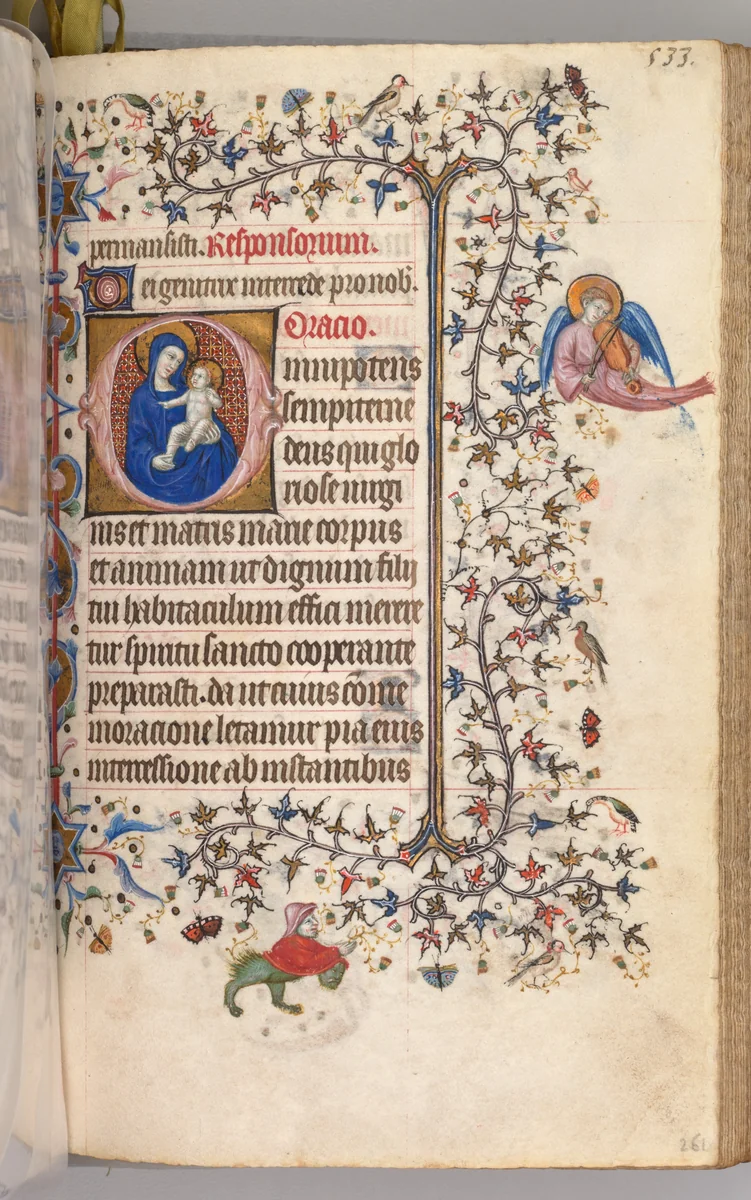 533.
permansisti. Responsorium.
Dei genitrix intercede pro nob̄.
Oracio.
Omnipotens
sempiterne
deus qui glo
riose uirgi
nis et matris marie corpus
et animam ut dignum filij
tui habitaculum effici merere
tur spiritu sancto cooperante
preparasti. da ut cuius cōme
moracione letamur pia eius
intercessione ab instantibus
261